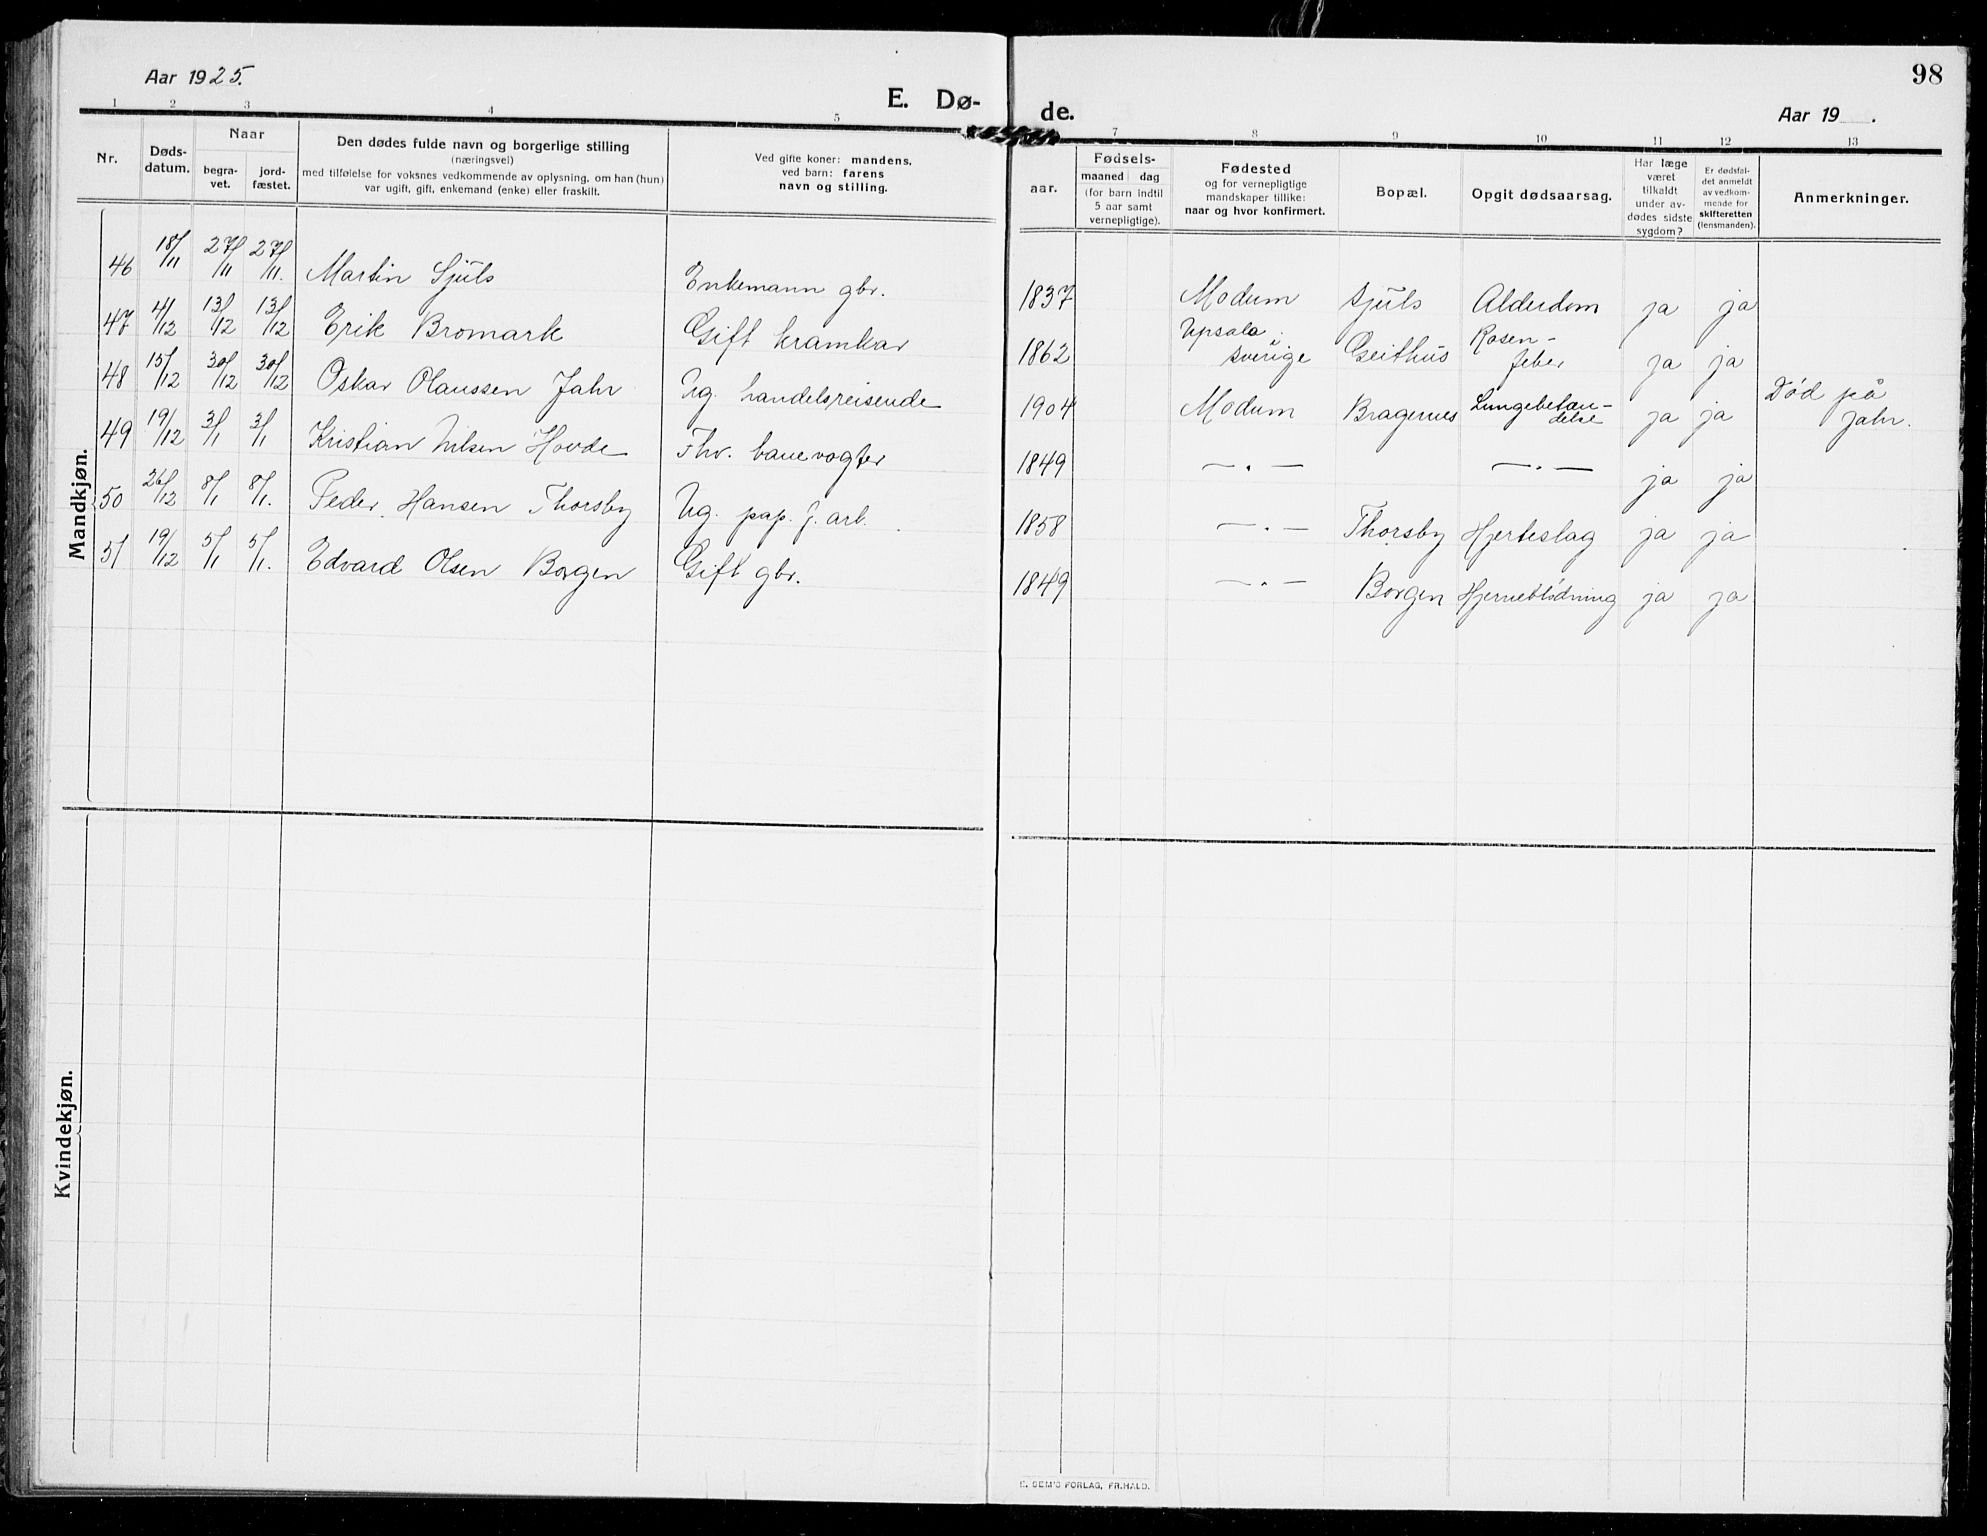 Aar 1925.
E. Dø-
de.
98
Aar 19 .
1 2 3 4 5 7 8 9 10 11 12 13
Nr.
Døds-
datum.
Naar
begra-
vet.
jord-
fæstet.
Den dødes fulde navn og borgerlige stilling
(næringsvei)
med tilføielse for voksnes vedkommende av oplysning, om han (hun)
var ugift, gift, enkemand (enke) eller fraskilt.
Ved gifte koner: mandens,
ved barn: farens
navn og stilling.
aar.
Fødsels-
maaned dag
(for barn indtil
5 aar samt
vernepligtige).
Fødested
og for vernepligtige
mandskaper tillike:
naar og hvor konfirmert.
Bopæl.
Opgit dødsaarsag.
Har læge
været
tilkaldt
under av-
dødes sidste
sygdom?
Er dødsfal-
det anmeldt
av vedkom-
mende for
skifteretten
(lensmanden).
Anmerkninger.
Mandkjøn.
46 18/11 27/11 27/11. Martin Sjuls Enkemann gbr. 1837 Modum Sjuls Alderdom ja ja
47 4/12 13/12 13/12 Erik Bromark Gift kramkar 1862 Upsala, Sverige Geithus Rosen-
feber ja ja
48 15/12 30/12 30/12 Oskar Olaussen Jahr Ug. handelsreisende 1904 Modum Bragernes Lungebetæn-
delse ja ja Död på
Jahr.
49 19/12 3/1 3/1 Kristian Nilsen Hovde Fhv. banevogter 1849 — " — — " — ja ja
50 26/12 8/1 8/1. Peder Hansen Thorsby Ug. pap. f. arb. 1858 — " — Thorsby Hjerteslag ja ja
51 19/12 5/1 5/1. Edvard Olsen Borgen Gift gbr. 1849 — " — Borgen Hjerneblödning ja ja
Kvindekjøn.
E. SEM'S FORLAG, FR.HALD.